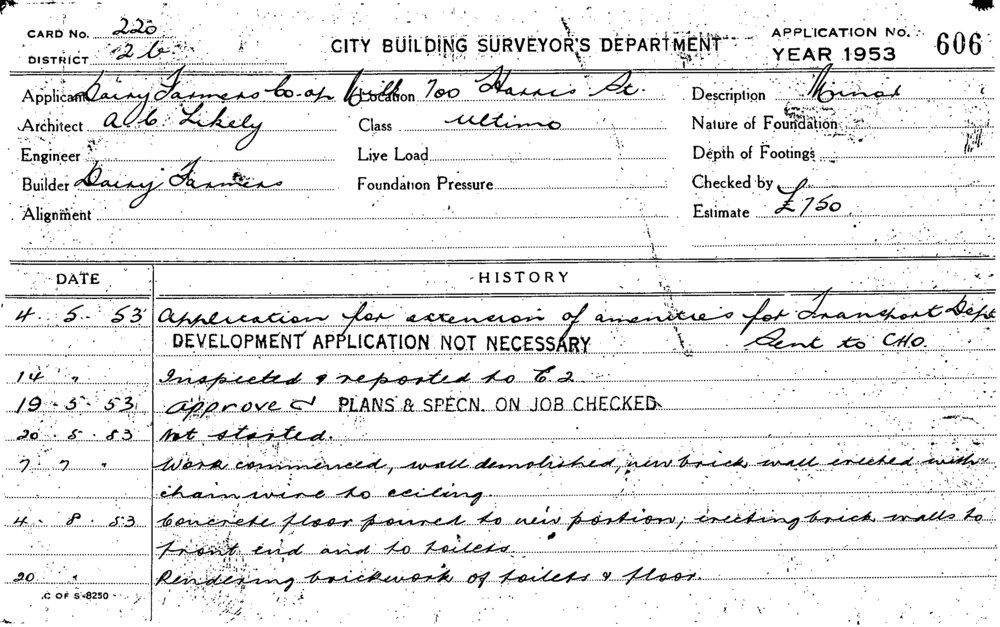 CARD No. 220
DISTRICT 26
CITY BUILDING SURVEYOR'S DEPARTMENT
APPLICATION No.
YEAR 1953
606
Applicant Dairy Farmers Co-op Milk Location 700 Harris St. Description Minor
Architect A. C. Likely Class Ultimo Nature of Foundation
Engineer Live Load Depth of Footings
Builder Dairy Farmers Foundation Pressure Checked by
Alignment Estimate £750
DATE HISTORY
4 . 5 . 53 Application for extension of amenities for Transport Dept
DEVELOPMENT APPLICATION NOT NECESSARY Sent to CHO.
14 " Inspected & reported to C.2
19 . 5 . 53 Approved PLANS & SPECN. ON JOB CHECKED
20 . 5 . 53 Not started.
7 7 " Work commenced, wall demolished, new brick wall erected with
chainwire to ceiling.
4 . 8 . 53 Concrete floor poured to new portion, erecting brick walls to
front end and to toilets.
20 " Rendering brickwork of toilets & floor.
C OF S-8250